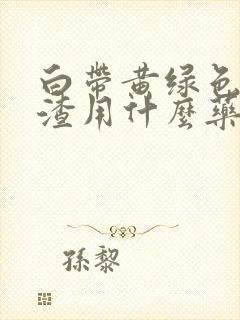 白帶黄绿色
渣用什麼藥
孫黎